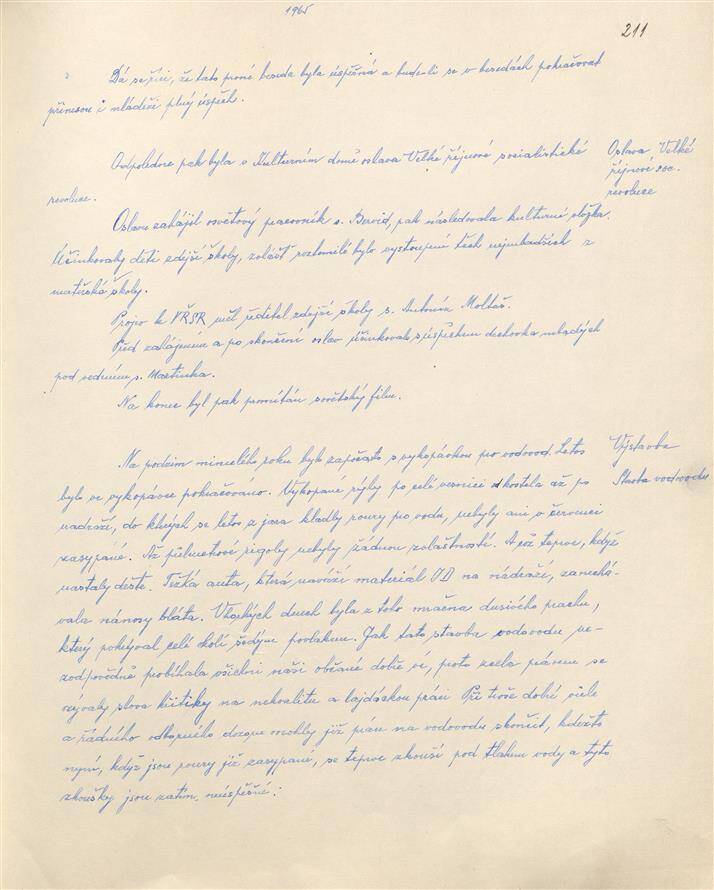 1965
211
Dá se říci, že tato první beseda byla úspěšná a bude-li se v besedách pokračovat
přinesou i mládeži plný úspěch.
Odpoledne pak byla v Kulturním domě oslava Velké říjnové socialistické
revoluce.
Oslava Velké
říjnové soc.
revoluce
Oslavu zahájil osvětový pracovník s. Bervid, pak následovala kulturní složka.
Účinkovaly děti zdejší školy, zvlášť roztomilé bylo vystoupení těch nejmladších z
mateřské školy.
Projev k VŘSR měl ředitel zdejší školy s. Antonín Moltaš.
Před zahájením a po skončení oslav účinkovala s úspěchem dechovka mladých
pod vedením s. Martinka.
Na konec byl pak promítán sovětský film.
Na podzim minulého roku bylo započato s vykopávkou pro vodovod. Letos
bylo ve vykopávce pokračováno. Vykopané rýhy po celé vesnici od kostela až po
nádraží, do kterých se letos z jara kladly roury po vodu, nebyly ani v červenci
zasypané. Až půlmetrové rigoly nebyly žádnou zvláštností. A což teprve, když
nastaly deště. Těžká auta, která naváží materiál ÚD na nádraží, zanechá-
vala nánosy bláta. V horkých dnech byla z toho mračna dusivého prachu,
který pokrýval celé okolí šedým povlakem. Jak tato stavba vodovodu ne-
zodpovědně probíhala všichni naši občané dobře ví, proto zcela právem se
ozývaly slova kritiky na nekvalitu a lajdáckou práci. Při troše dobré vůle
a řádného odborného dozoru mohly již práce na vodovodu skončit, kdežto
nyní, když jsou roury již zasypané, se teprve zkouší pod tlakem vody a tyto
zkoušky jsou zatím neúspěšné.
Výstavba
Stavba vodovodu